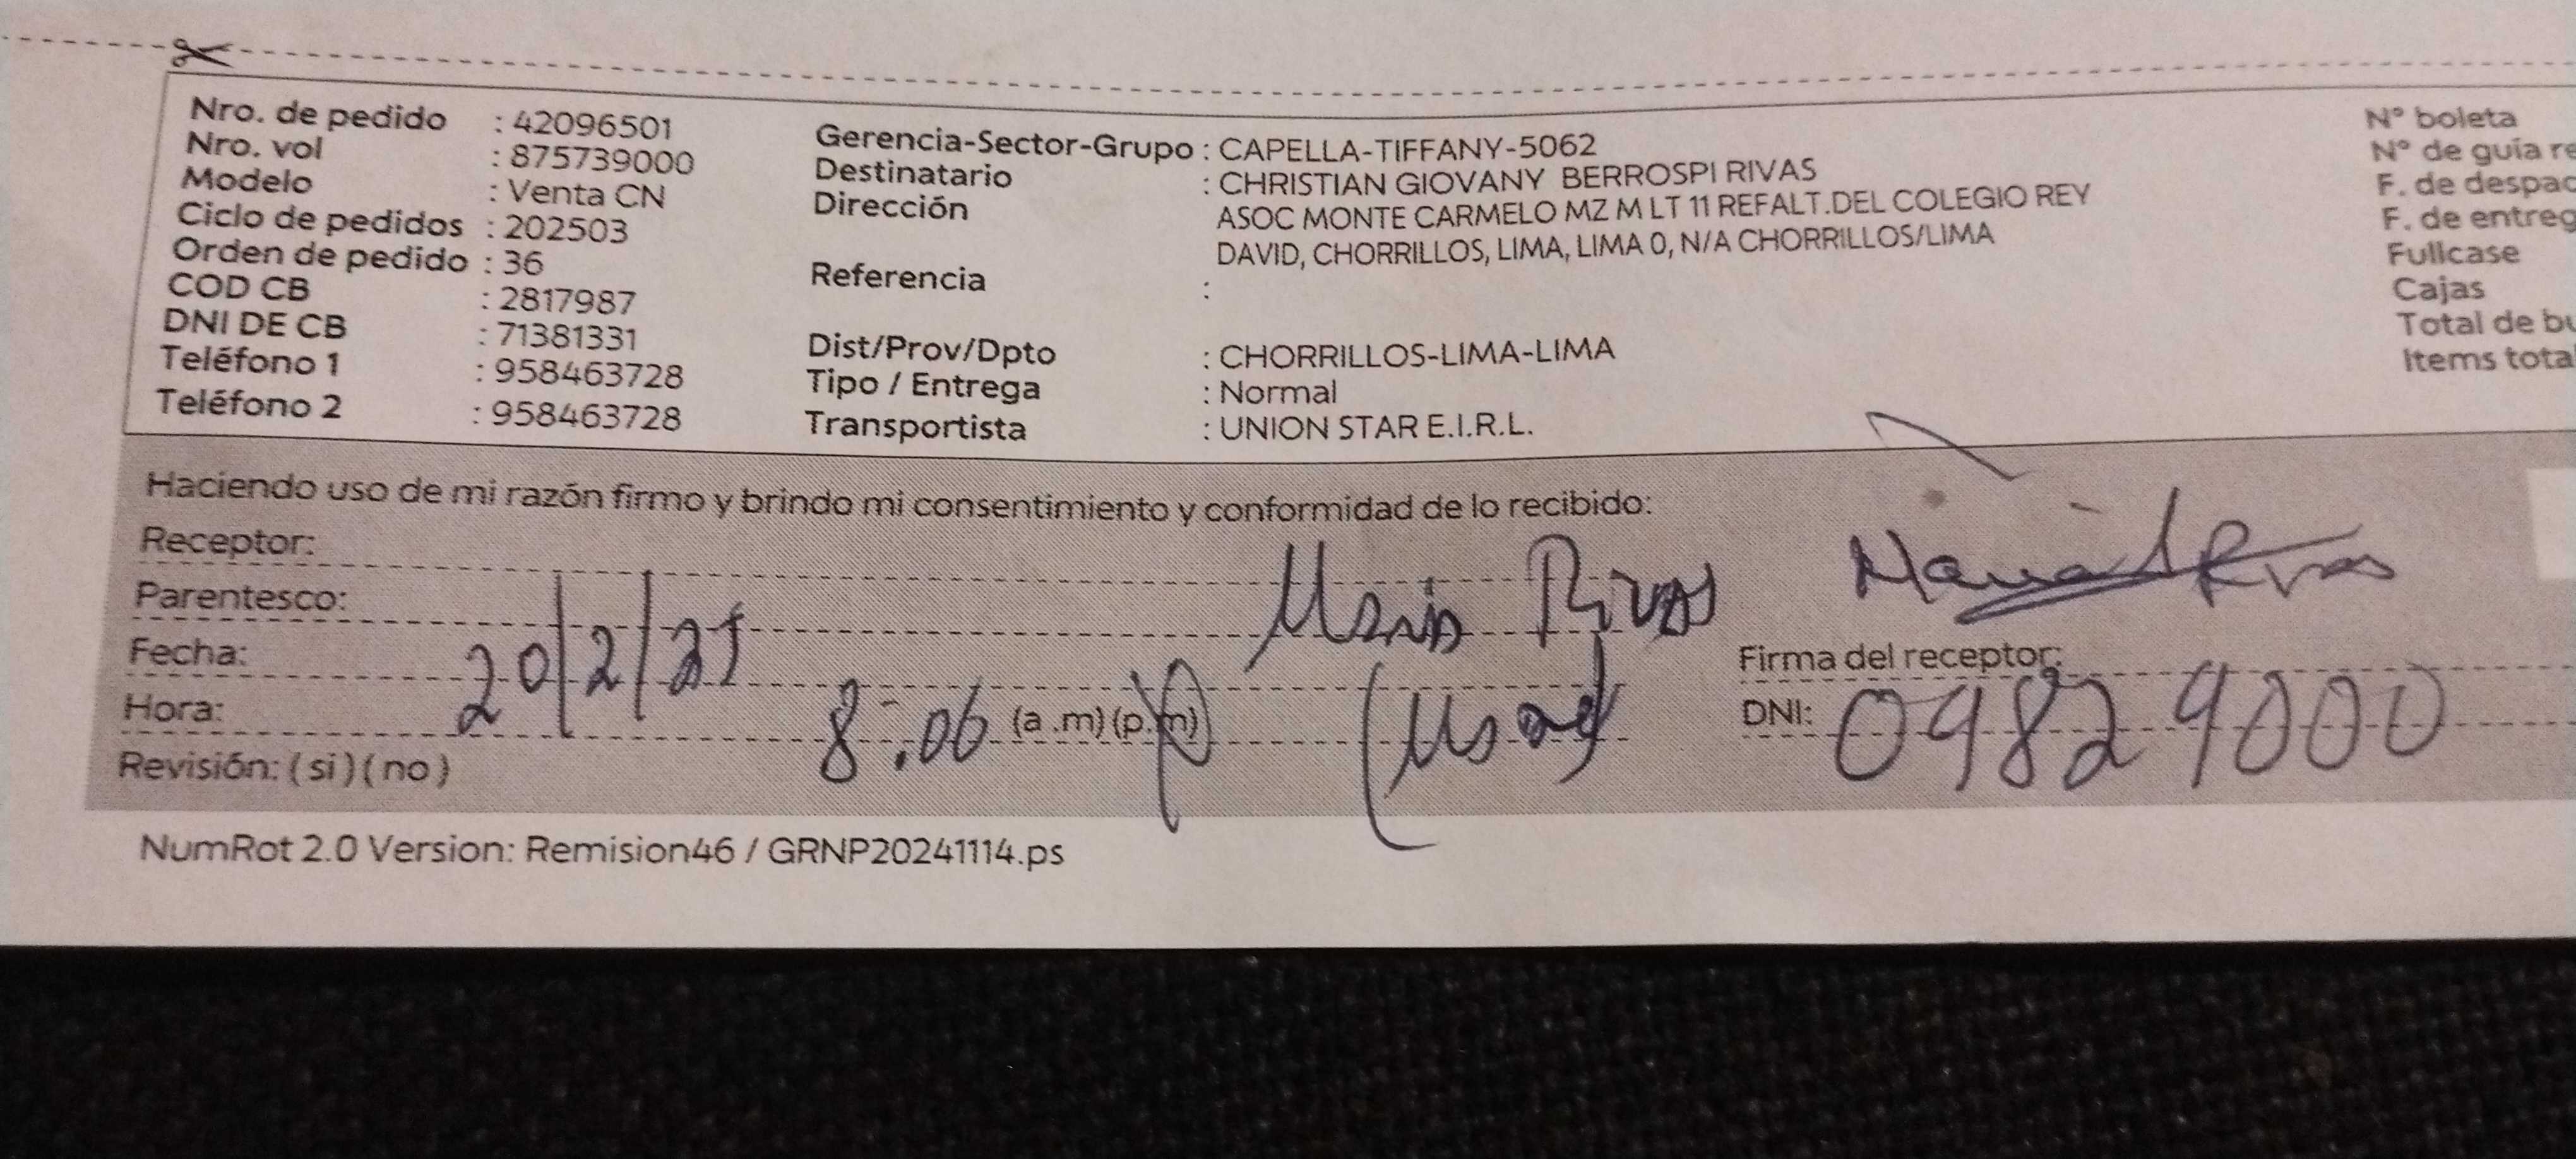 Nro. de pedido : 42096501
Nro. vol : 875739000
Modelo : Venta CN
Ciclo de pedidos : 202503
Orden de pedido : 36
COD CB : 2817987
DNI DE CB : 71381331
Teléfono 1 : 958463728
Teléfono 2 : 958463728
Gerencia-Sector-Grupo : CAPELLA-TIFFANY-5062
Destinatario : CHRISTIAN GIOVANY BERROSPI RIVAS
Dirección ASOC MONTE CARMELO MZ M LT 11 REFALT.DEL COLEGIO REY
DAVID, CHORRILLOS, LIMA, LIMA 0, N/A CHORRILLOS/LIMA
Referencia :
Dist/Prov/Dpto : CHORRILLOS-LIMA-LIMA
Tipo / Entrega : Normal
Transportista : UNION STAR E.I.R.L.
N° boleta
N° de guía re
F. de despac
F. de entreg
Fullcase
Cajas
Total de bu
Items total
Haciendo uso de mi razón firmo y brindo mi consentimiento y conformidad de lo recibido:
Receptor: Maria Rivas
Parentesco:
Fecha: 20/2/25
Hora: 8:06 (a .m) (p.m)
Revisión: ( si ) ( no )
Maria Rivas
Firma del receptor:
DNI: 09829000
NumRot 2.0 Version: Remision46 / GRNP20241114.ps